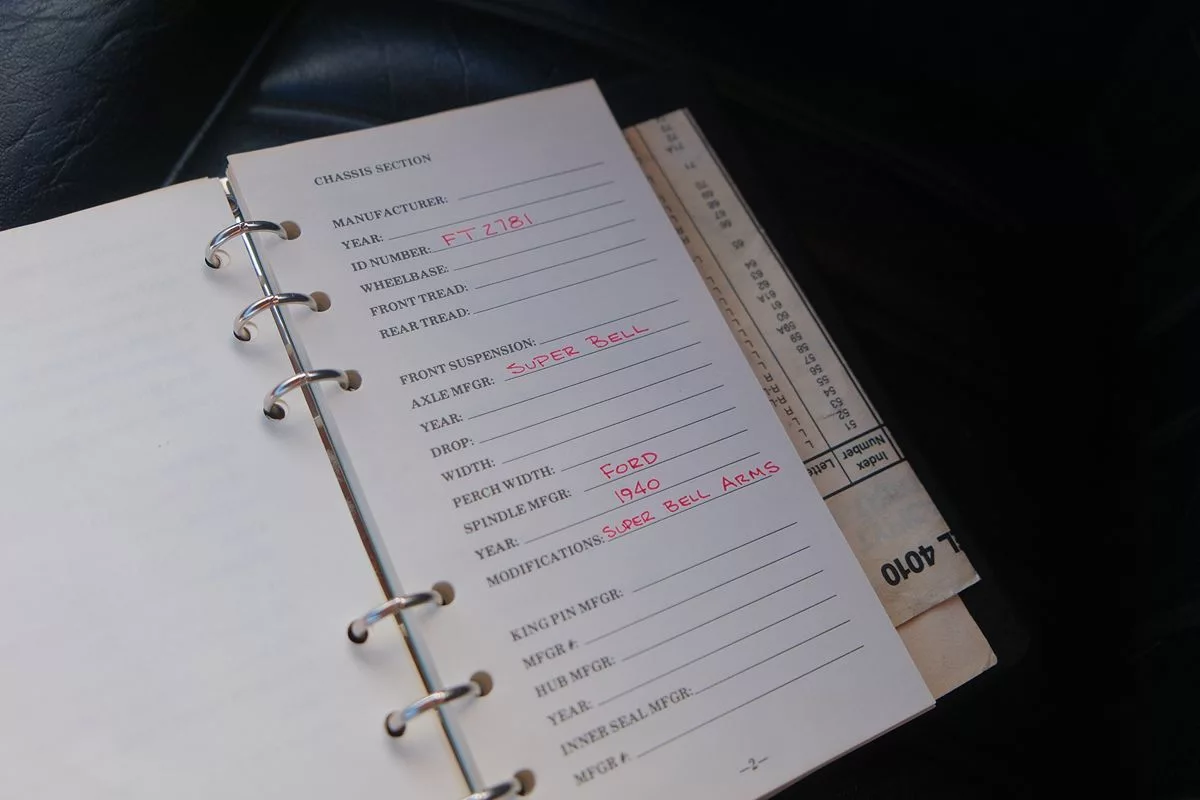 CHASSIS SECTION
MANUFACTURER:
YEAR:
ID NUMBER: FT 2781
WHEELBASE:
FRONT TREAD:
REAR TREAD:
FRONT SUSPENSION:
AXLE MFGR: SUPER BELL
YEAR:
DROP:
WIDTH:
PERCH WIDTH:
SPINDLE MFGR: FORD
YEAR: 1940
MODIFICATIONS: SUPER BELL ARMS
KING PIN MFGR:
MFGR #:
HUB MFGR:
YEAR:
INNER SEAL MFGR:
MFGR #:
-2-
4010
Index
Number
51
52
53
54
55
56
57
58
59A
60
61
61A
62
63
64
65
66
67
68
69
70
71
71A